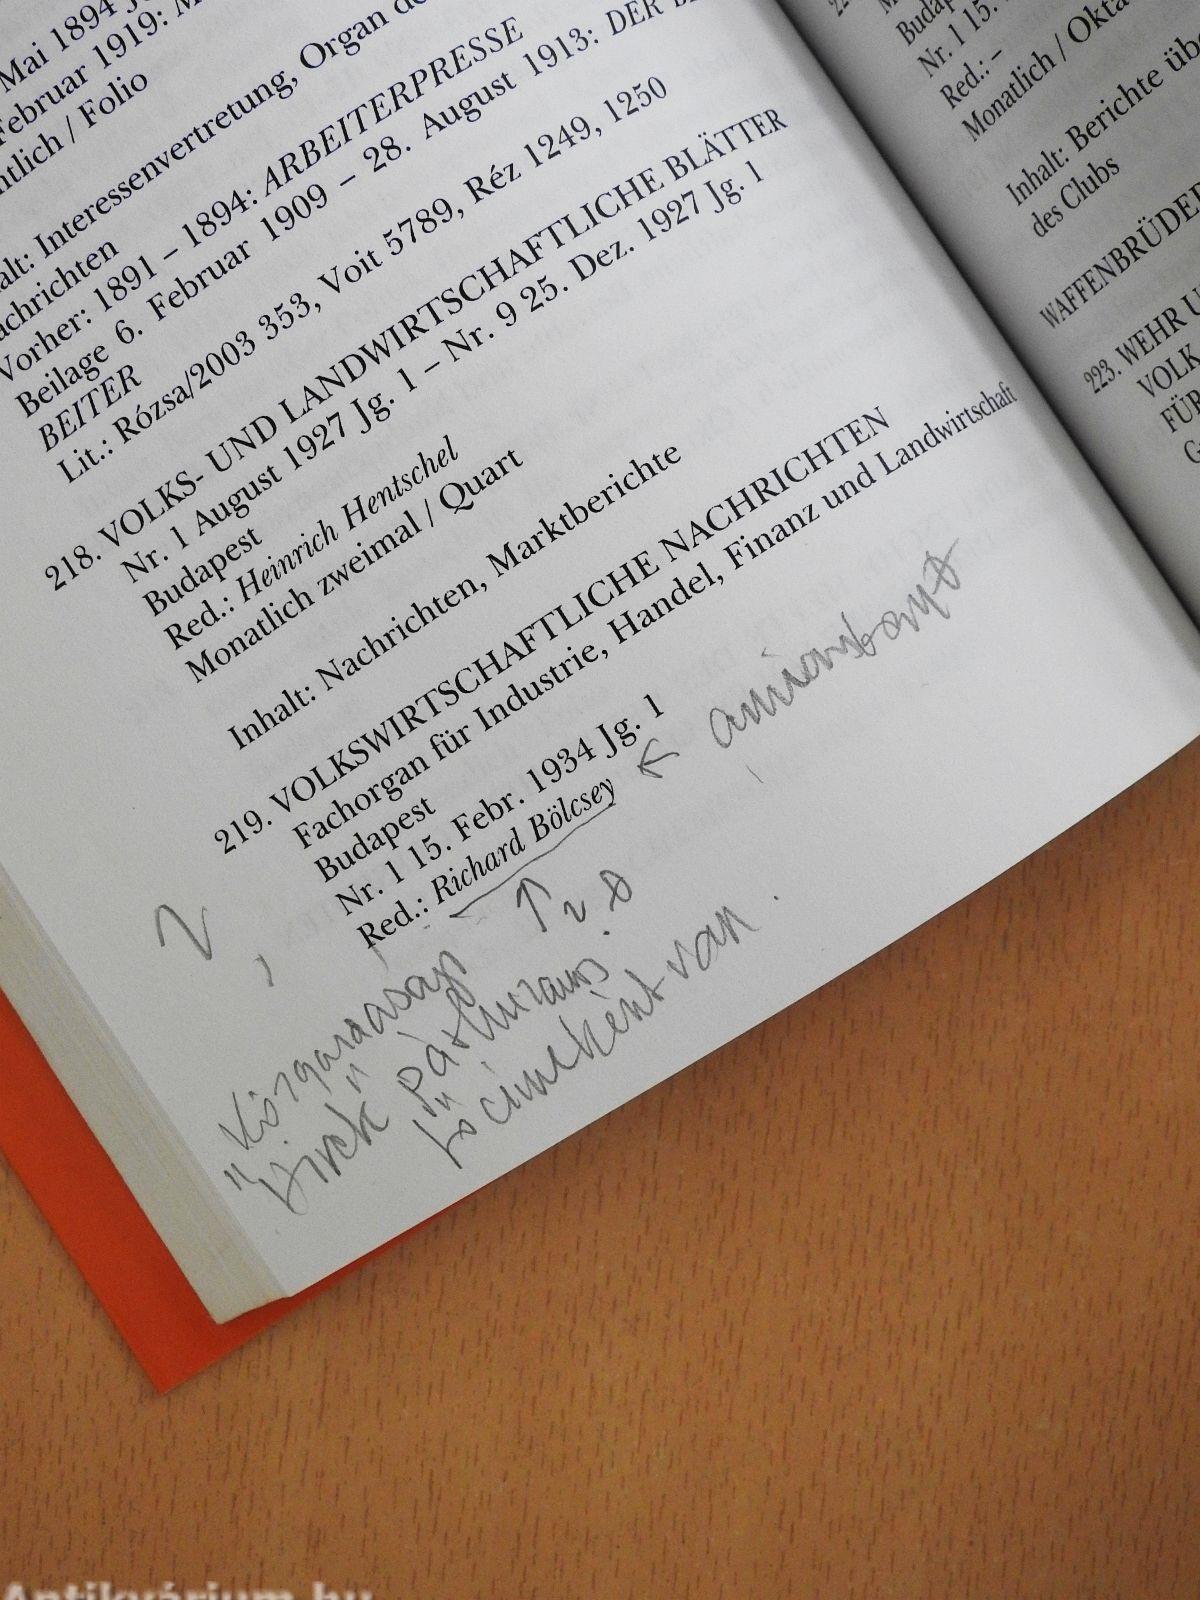 Mai 1894
Februar 1919:
ntlich / Folio
alt: Interessenvertretung, Organ
achrichten
Vorher: 1891 – 1894: ARBEITERPRESSE
Beilage 6. Februar 1909 – 28. August 1913: DER
BEITER
Lit.: Rózsa/2003 353, Voit 5789, Réz 1249, 1250
218. VOLKS- UND LANDWIRTSCHAFTLICHE BLÄTTER
Nr. 1 August 1927 Jg. 1 – Nr. 9 25. Dez. 1927 Jg. 1
Budapest
Red.: Heinrich Hentschel
Monatlich zweimal / Quart
Inhalt: Nachrichten, Marktberichte
219. VOLKSWIRTSCHAFTLICHE NACHRICHTEN
Fachorgan für Industrie, Handel, Finanz und Landwirtschaft
Budapest
Nr. 1 15. Febr. 1934 Jg. 1
Red.: Richard Bölcsey
címeként van
Nr. 1 15.
Red.: –
Monatlich / Okta
Inhalt: Berichte üb
des Clubs
WAFFENBRÜDER
223. WEHR U
VOLK
FÜR
Antikvárium.hu